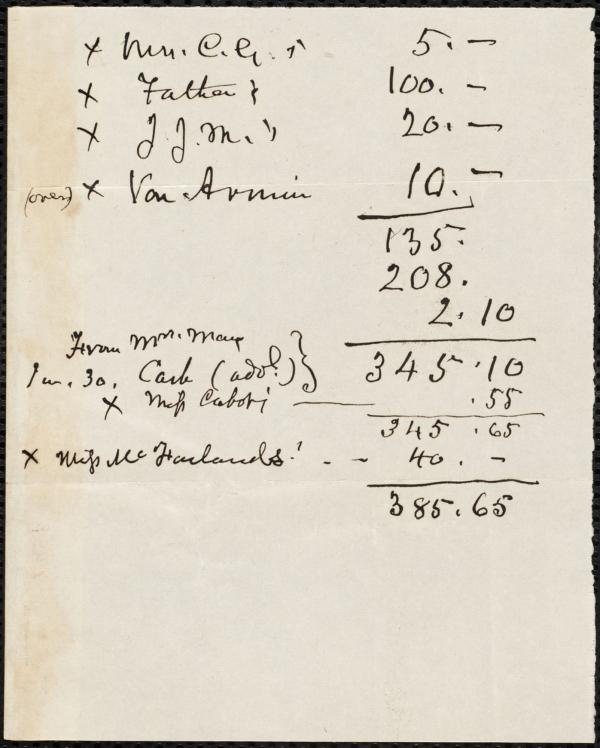 x Mrs. C. G.'s 5. —
x Father's 100. —
x J. J. M.'s 20. —
(over) x Von Arnim 10. —
135.
208.
2.10
From Mrs. May
Jan. 30. Cash (adol.) } 345.10
x Miss Cabot's — .55
345.65
x Miss McFarland's' - - 40. -
385.65